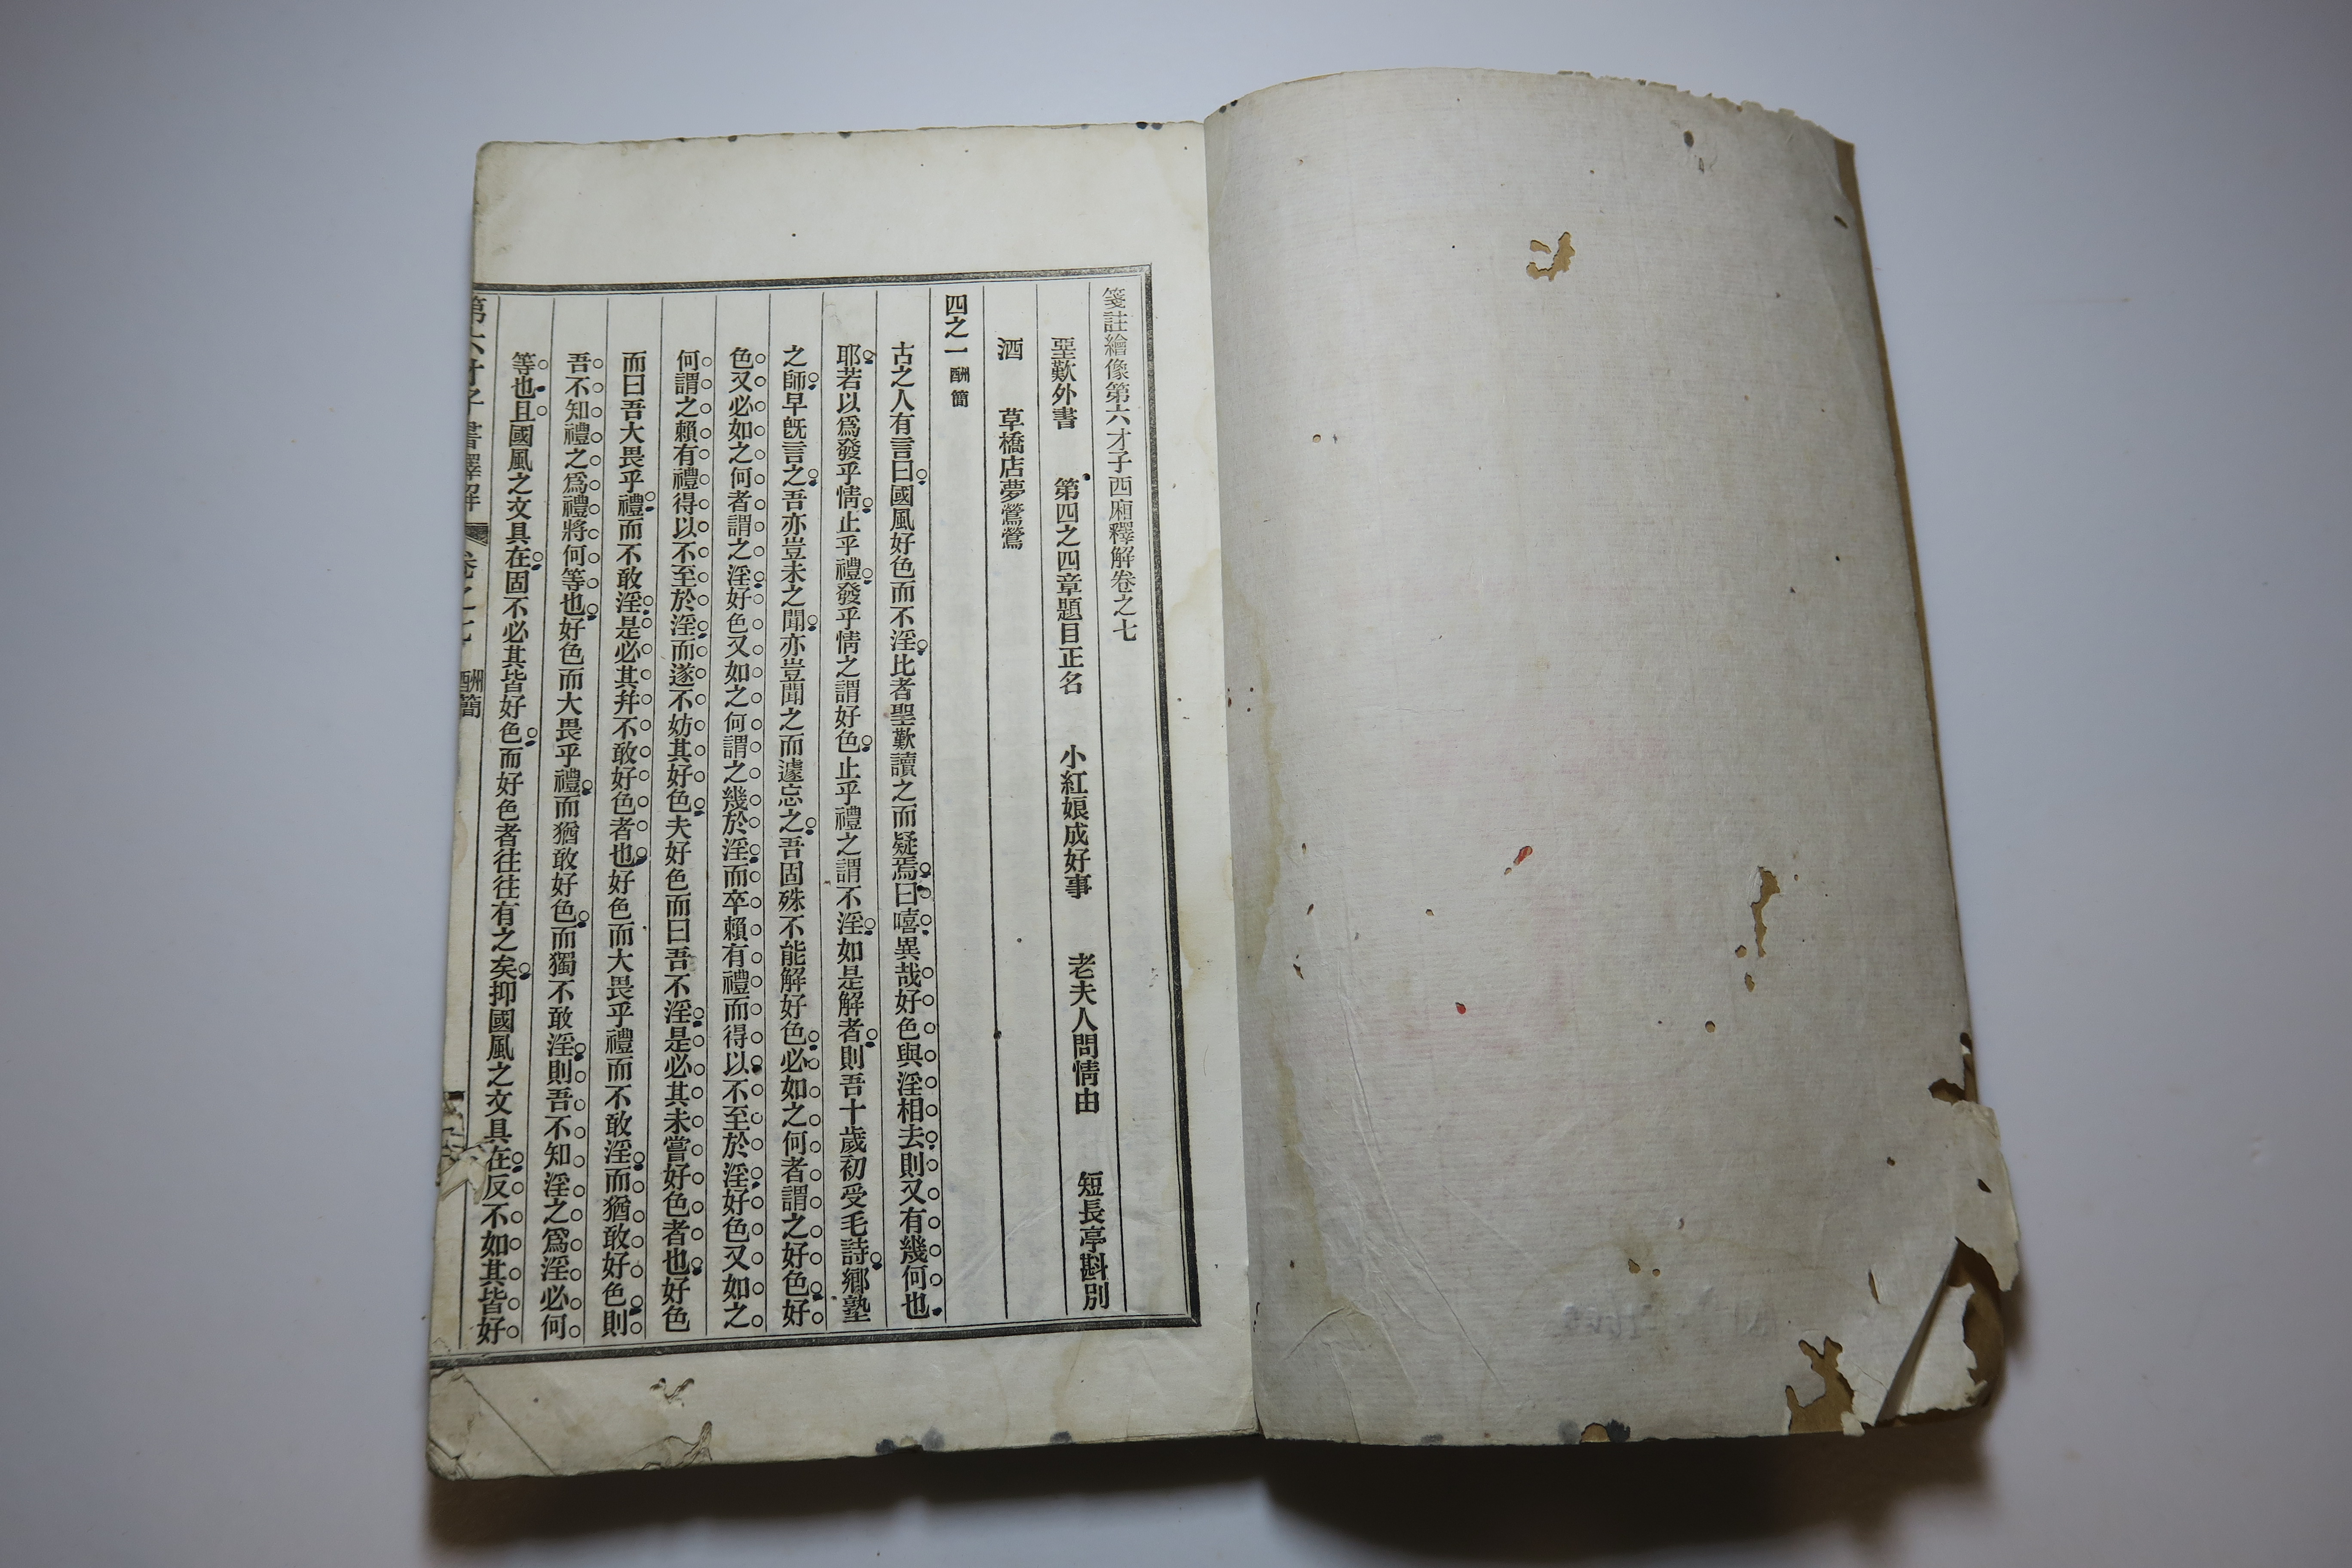 箋註繪像第六才子西廂釋解卷之七
聖歎外書　第四之四章題目正名　小紅娘成好事　老夫人問情由　短長亭斟別
酒　草橋店夢鶯鶯
四之一 酬簡
古之人有言曰國風好色而不淫比者聖歎讀之而疑焉曰嘻異哉好色與淫相去則又有幾何也
耶若以爲發乎情止乎禮發乎情之謂好色止乎禮之謂不淫如是解者則吾十歲初受毛詩鄉塾
之師早旣言之吾亦豈未之聞亦豈聞之而遽忘之吾固殊不能解好色必如之何者謂之好色好
色又必如之何者謂之淫好色又如之何謂之幾於淫而卒賴有禮而得以不至於淫好色又如之
何謂之賴有禮得以不至於淫而遂不妨其好色夫好色而曰吾不淫是必其未嘗好色者也好色
而曰吾大畏乎禮而不敢淫是必其幷不敢好色者也好色而大畏乎禮而不敢淫而猶敢好色則
吾不知禮之爲禮將何等也好色而大畏乎禮而猶敢好色而獨不敢淫則吾不知淫之爲淫必何
等也且國風之文具在固不必其皆好色而好色者往往有之矣抑國風之文具在反不如其皆好
第六才子書釋解　卷之七　酬簡